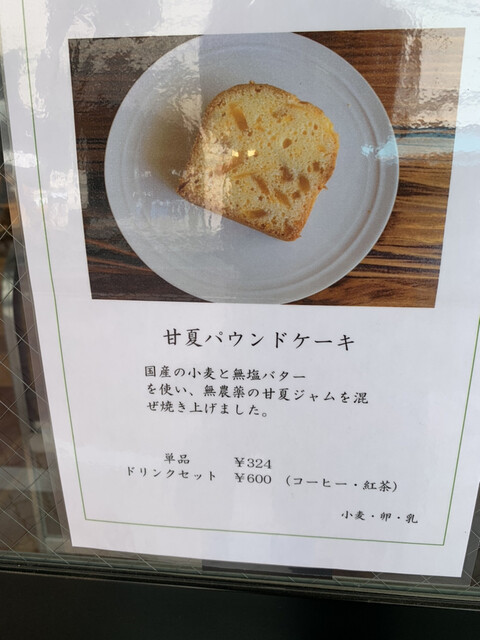 甘夏パウンドケーキ
国産の小麦と無塩バター
を使い、無農薬の甘夏ジャムを混
ぜ焼き上げました。
単品 ¥324
ドリンクセット ¥600 (コーヒー・紅茶)
小麦・卵・乳